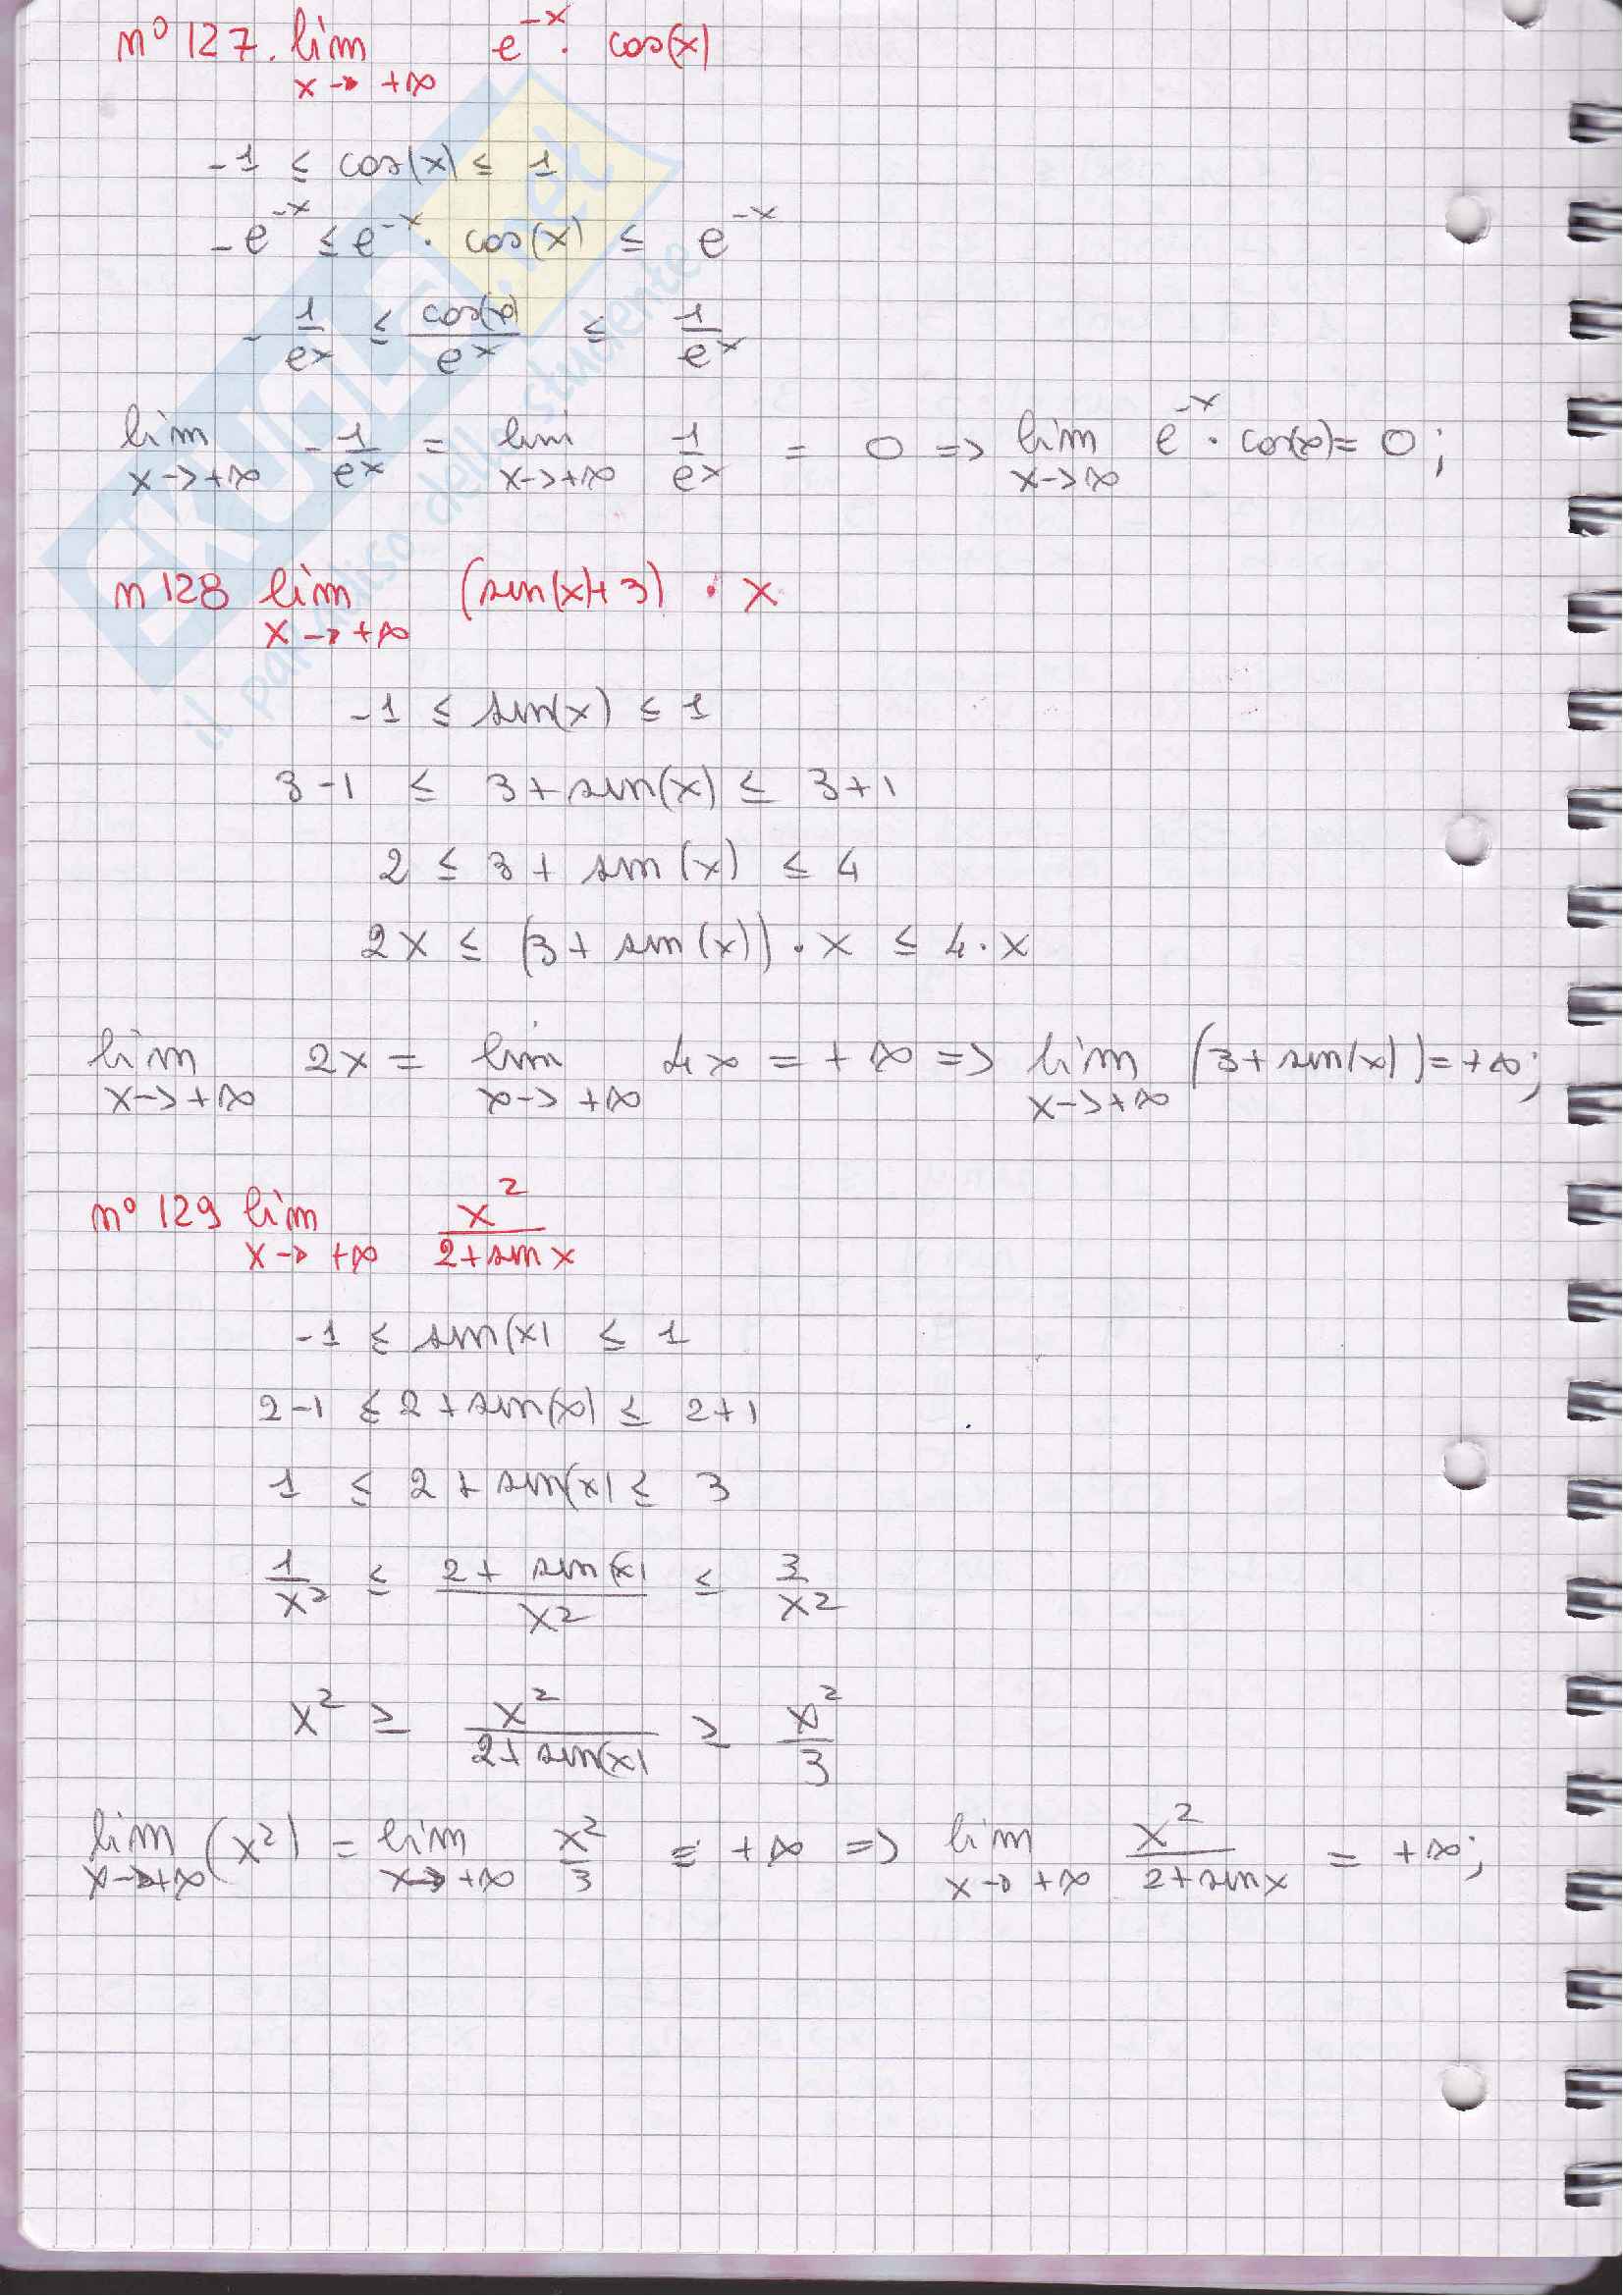 n° 127. lim x→+∞ e^-x · cos(x)
-1 ≤ cos(x) ≤ 1
-e^-x ≤ e^-x · cos(x) ≤ e^-x
-1/e^x ≤ cos(x)/e^x ≤ 1/e^x
lim x→+∞ -1/e^x = lim x→+∞ 1/e^x = 0 => lim x→∞ e^-x · cos(x) = 0;
n 128 lim x→+∞ (sin(x)+3) · x
-1 ≤ sin(x) ≤ 1
3-1 ≤ 3+sin(x) ≤ 3+1
2 ≤ 3+sin(x) ≤ 4
2x ≤ (3+sin(x)) · x ≤ 4·x
lim x→+∞ 2x = lim x→+∞ 4x = +∞ => lim x→+∞ (3+sin(x)) = +∞;
n° 129 lim x→+∞ x²/(2+sin x)
-1 ≤ sin(x) ≤ 1
2-1 ≤ 2+sin(x) ≤ 2+1
1 ≤ 2+sin(x) ≤ 3
1/x² ≤ (2+sin(x))/x² ≤ 3/x²
x² ≥ x²/(2+sin(x)) ≥ x²/3
lim x→+∞ (x²) = lim x→+∞ x²/3 = +∞ => lim x→+∞ x²/(2+sin x) = +∞;
SKUOLA.net
il paradiso dello studente